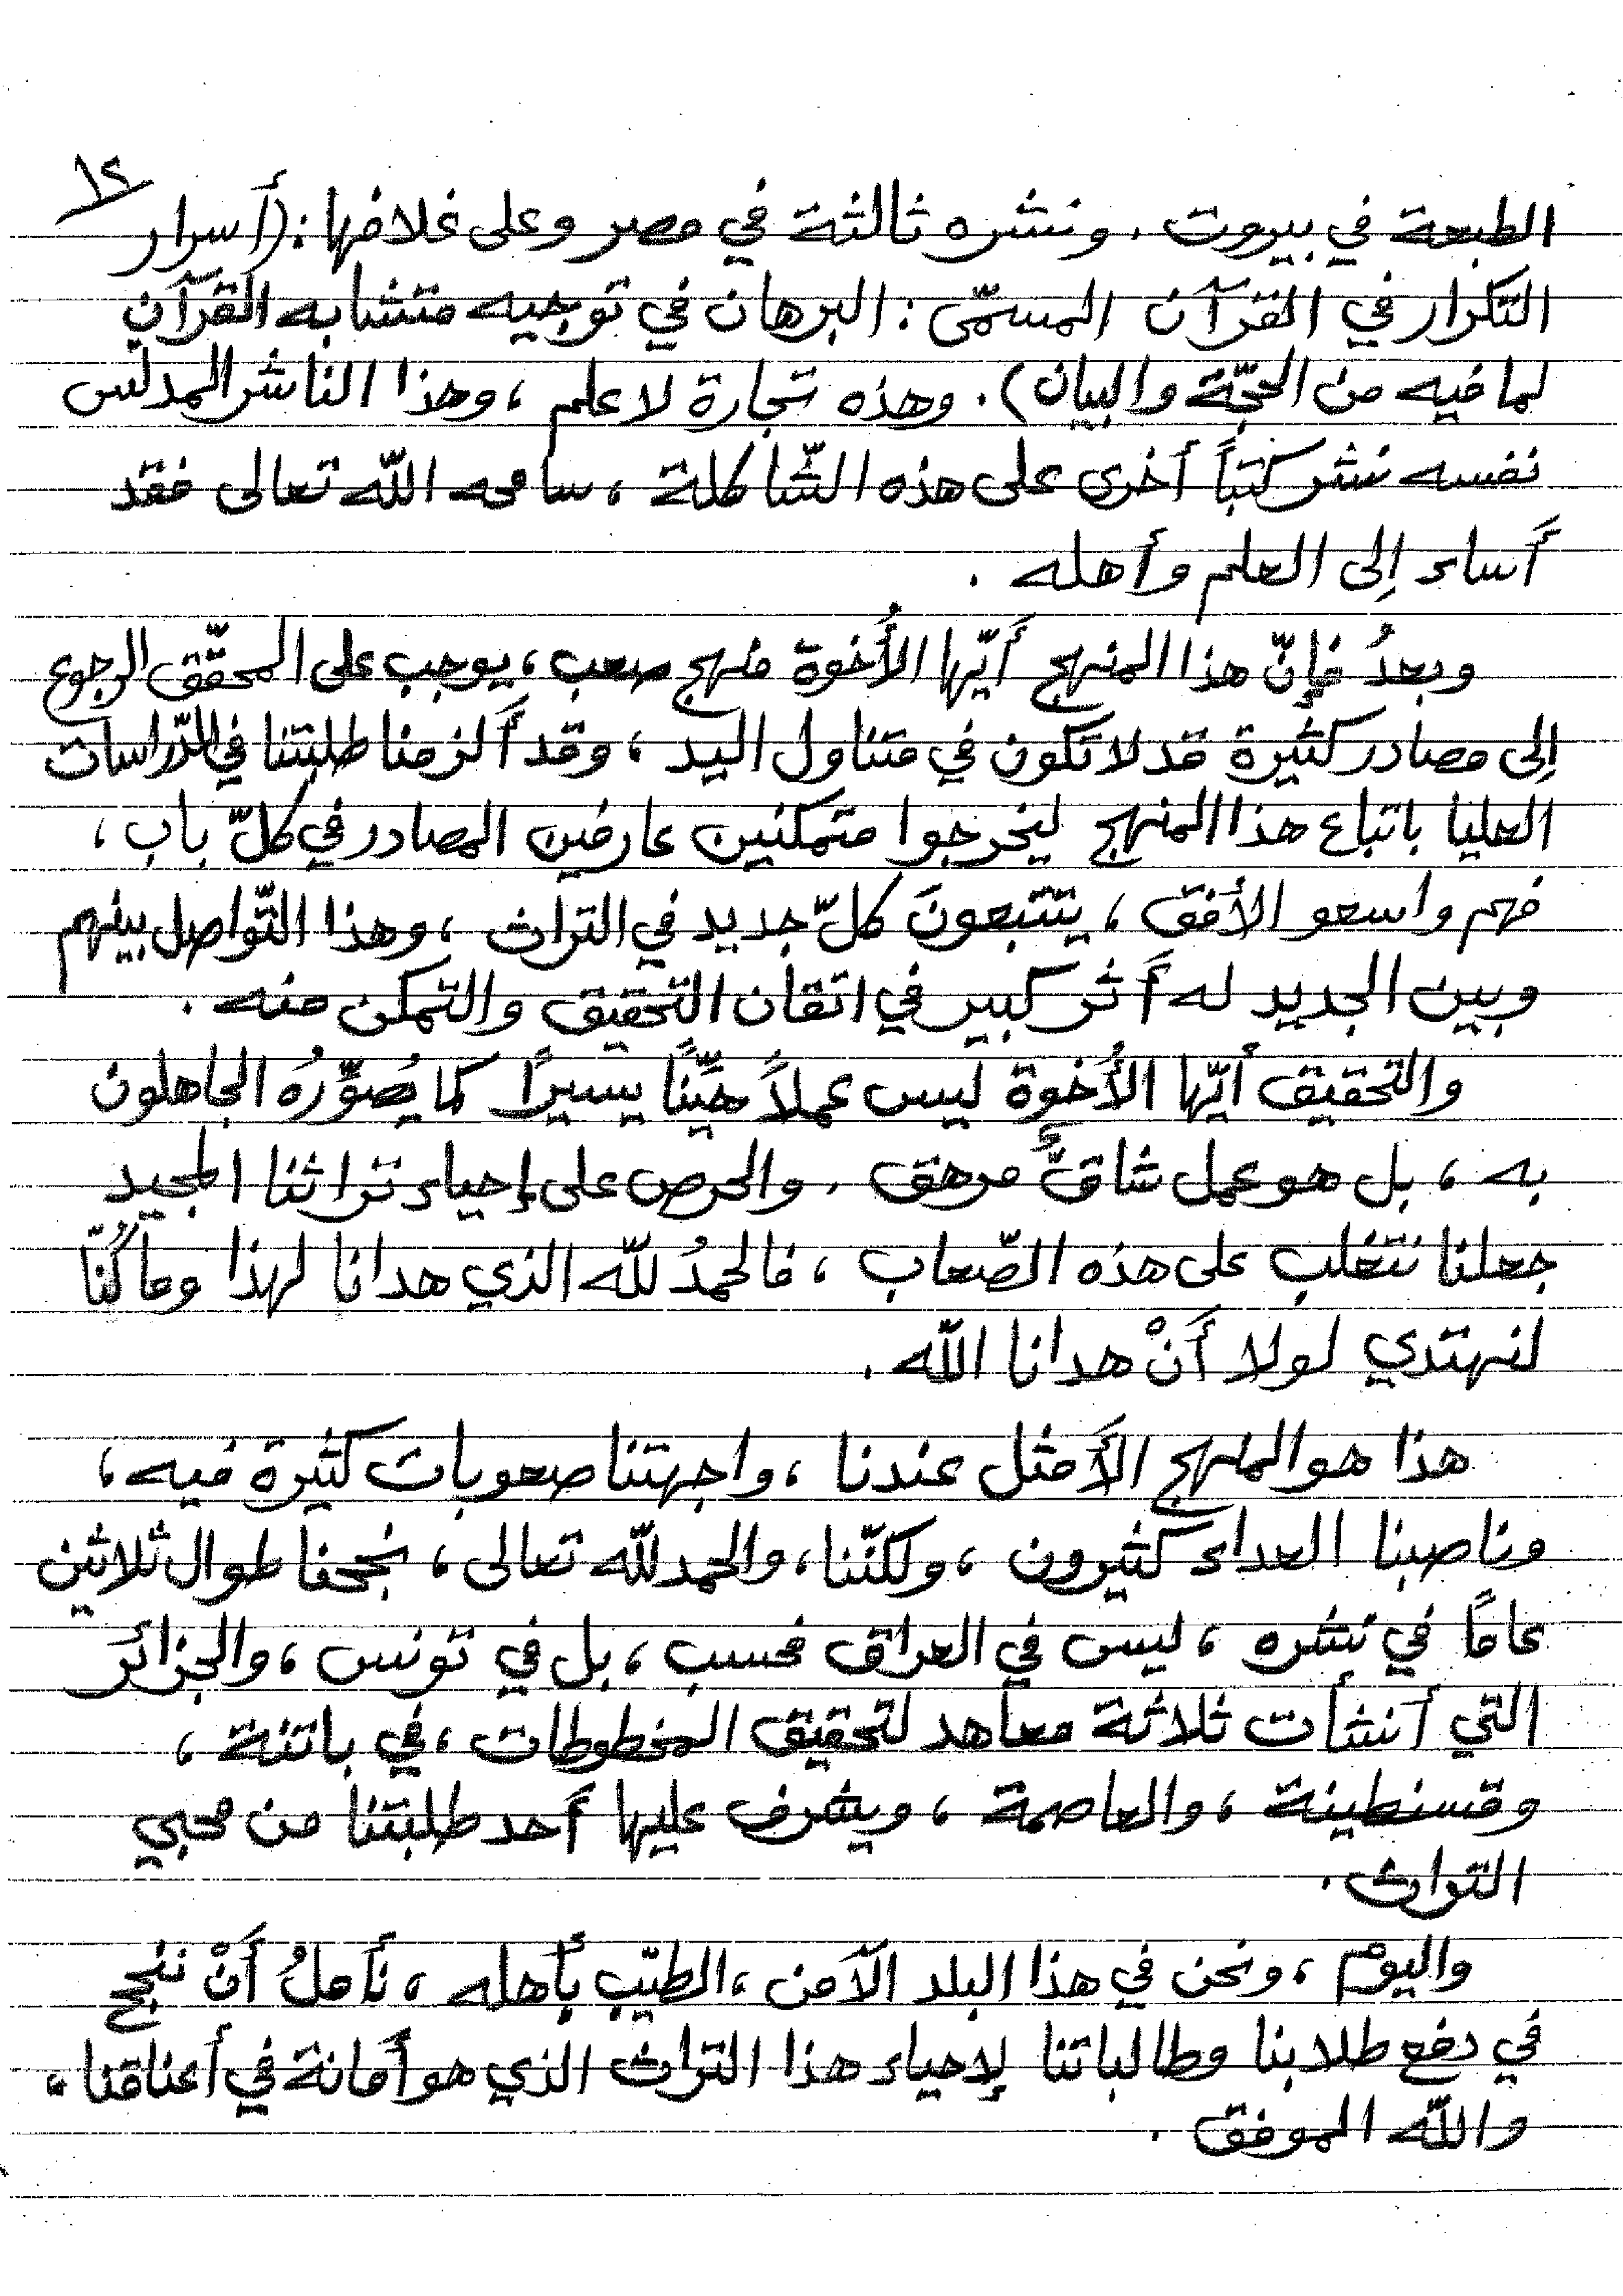 ١٢
الطبعة في بيروت. ونشره ثالثة في مصر وعلى غلافها: (أسرار
التكرار في القرآن المسمّى: البرهان في توجيه متشابه القرآن
لما فيه من الحجّة والبيان). وهذه تجارة لا علم، وهذا الناشر المدلس
نفسه نشر كتباً أخرى على هذه الشّاكلة، سامحه اللّه تعالى فقد
أَساء إِلى العلم وأهله.
وبعدُ فإِنّ هذا المنهج أَيّها الأُخوة منهج صعب، يوجب على المحقّق الرجوع
إِلى مصادر كثيرة قد لا تكون في متناول اليد، وقد أَلزمنا طلبتنا في الدّراسات
العليا باتباع هذا المنهج ليخرجوا متمكنين عارفين المصادر في كلّ باب،
فهم واسعو الأفق، يتتبعونَ كلّ جديد في التراث، وهذا التّواصل بينهم
وبين الجديد له أَثر كبير في اتقان التحقيق والتمكن منه.
والتحقيق أيّها الأُخوة ليس عملاً هيّنًا يسيرًا كما يُصوِّرُهُ الجاهلون
به، بل هو عمل شاقٌّ مرهق. والحرص على إحياء تراثنا المجيد
جعلنا نتغلب على هذه الصّعاب، فالحمدُ للّه الذي هدانا لهذا وما كُنّا
لنهتدي لولا أَنْ هدانا اللّه.
هذا هو المنهج الأَمثل عندنا، واجهتنا صعوبات كثيرة فيه،
وناصبنا العداء كثيرون، ولكنّنا، والحمد للّه تعالى، نجحنا طوال ثلاثين
عامًا في نشره، ليس في العراق فحسب، بل في تونس، والجزائر
التي أنشأت ثلاثة معاهد لتحقيق المخطوطات، في باتنة،
وقسنطينة، والعاصمة، ويشرف عليها أَحد طلبتنا من محبي
التراث.
واليوم، ونحن في هذا البلد الآمن، الطيّب بأَهله، نأملُ أَنْ ننجح
في دفع طلابنا وطالباتنا لإحياء هذا التراث الذي هو أَمانة في أعناقنا،
واللّه الموفق.